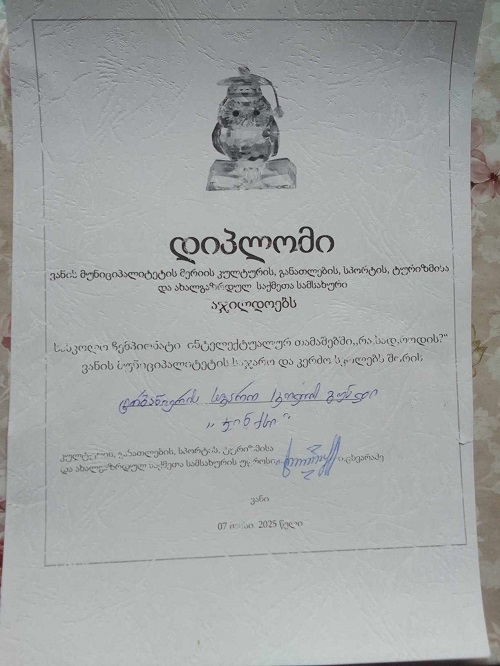 დიპლომი
ვანის მუნიციპალიტეტის მერიის კულტურის, განათლების, სპორტის, ტურიზმისა
და ახალგაზრდულ საქმეთა სამსახური
აჯილდოებს
სასკოლო ჩემპიონატი ინტელექტუალურ თამაშებში „რა?სად?როდის?"
ვანის მუნიციპალიტეტის საჯარო და კერძო სკოლებს შორის
საჯარო სკოლის გუნდი
კულტურის, განათლების, სპორტის, ტურიზმისა
და ახალგაზრდულ საქმეთა სამსახურის უფროსი
ვანი
07 2025 წელი